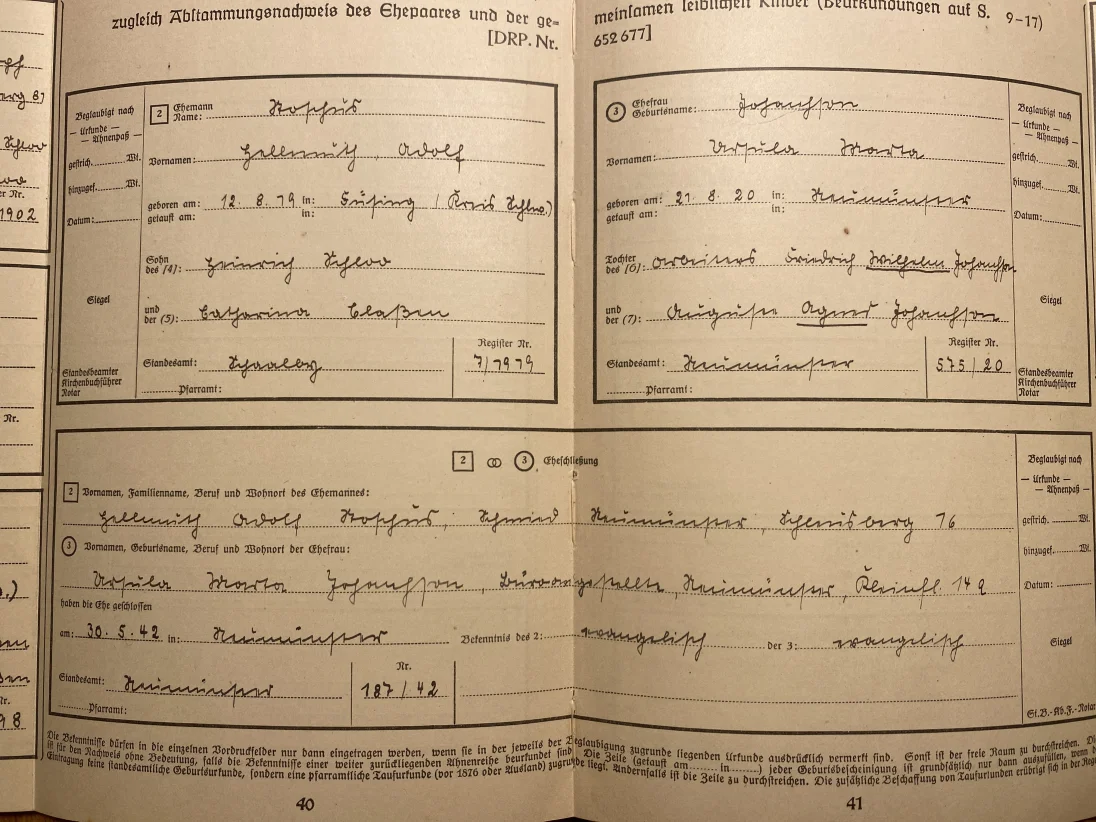 zugleich Abstammungsnachweis des Ehepaares und der ge=
[DRP. Nr.
meinsamen leiblichen Kinder (Beurkundungen auf S. 9-17)
652 677]
Beglaubigt nach
— Urkunde —
— Ahnenpaß —
gestrich. Wt.
hinzugef. Wt.
Datum:
Siegel
Standesbeamter
Kirchenbuchführer
Notar
2 Ehemann
Name: Roschus
Vornamen: Hellmuth Adolf
geboren am: 12. 8. 19 in: Füsing (Kreis Schlw.)
getauft am: in:
Sohn
des (4): Heinrich Schloo
und
der (5): Catharina Claßen
Standesamt: Schaalby
Register Nr.
7/1919
Pfarramt:
3 Ehefrau
Geburtsname: Johannson
Vornamen: Ursula Marta
geboren am: 21. 8. 20 in: Neumünster
getauft am: in:
Tochter
des (6): Arbeiters Friedrich Wilhelm Johannson
und
der (7): Auguste Agnes Johannson
Standesamt: Neumünster
Register Nr.
575/20
Pfarramt:
Beglaubigt nach
— Urkunde —
— Ahnenpaß —
gestrich. Wt.
hinzugef. Wt.
Datum:
Siegel
Standesbeamter
Kirchenbuchführer
Notar
2 ⚭ 3 Eheschließung
2 Vornamen, Familienname, Beruf und Wohnort des Ehemannes:
Hellmuth Adolf Roschus, Schmied Neumünster, 16
3 Vornamen, Geburtsname, Beruf und Wohnort der Ehefrau:
Ursula Marta Johannson, Büroangestellte, Neumünster, Kleinfl. 149
haben die Ehe geschlossen
am: 30. 5. 42 in: Neumünster Bekenntnis des 2: evangelisch der 3: evangelisch
Standesamt: Neumünster
Nr.
187/42
Pfarramt:
Beglaubigt nach
— Urkunde —
— Ahnenpaß —
gestrich. Wt.
hinzugef. Wt.
Datum:
Siegel
St.B.-Kb.F.-Notar
Die Bekenntnisse dürfen in die einzelnen Vordruckfelder nur dann eingetragen werden, wenn sie in der jeweils der Beglaubigung zugrunde liegenden Urkunde ausdrücklich vermerkt sind. Sonst ist der freie Raum zu durchstreichen.
ist für den Nachweis ohne Bedeutung, falls die Bekenntnisse einer weiter zurückliegenden Ahnenreihe beurkundet sind. Die Zeile (getauft am in ) jeder Geburtsbescheinigung ist grundsätzlich nur dann auszufüllen, wenn
Eintragung keine standesamtliche Geburtsurkunde, sondern eine pfarramtliche Taufurkunde (vor 1876 oder Ausland) zugrunde liegt. Andernfalls ist die Zeile zu durchstreichen. Die zusätzliche Beschaffung von Taufurkunden erübrigt sich in der
40
41